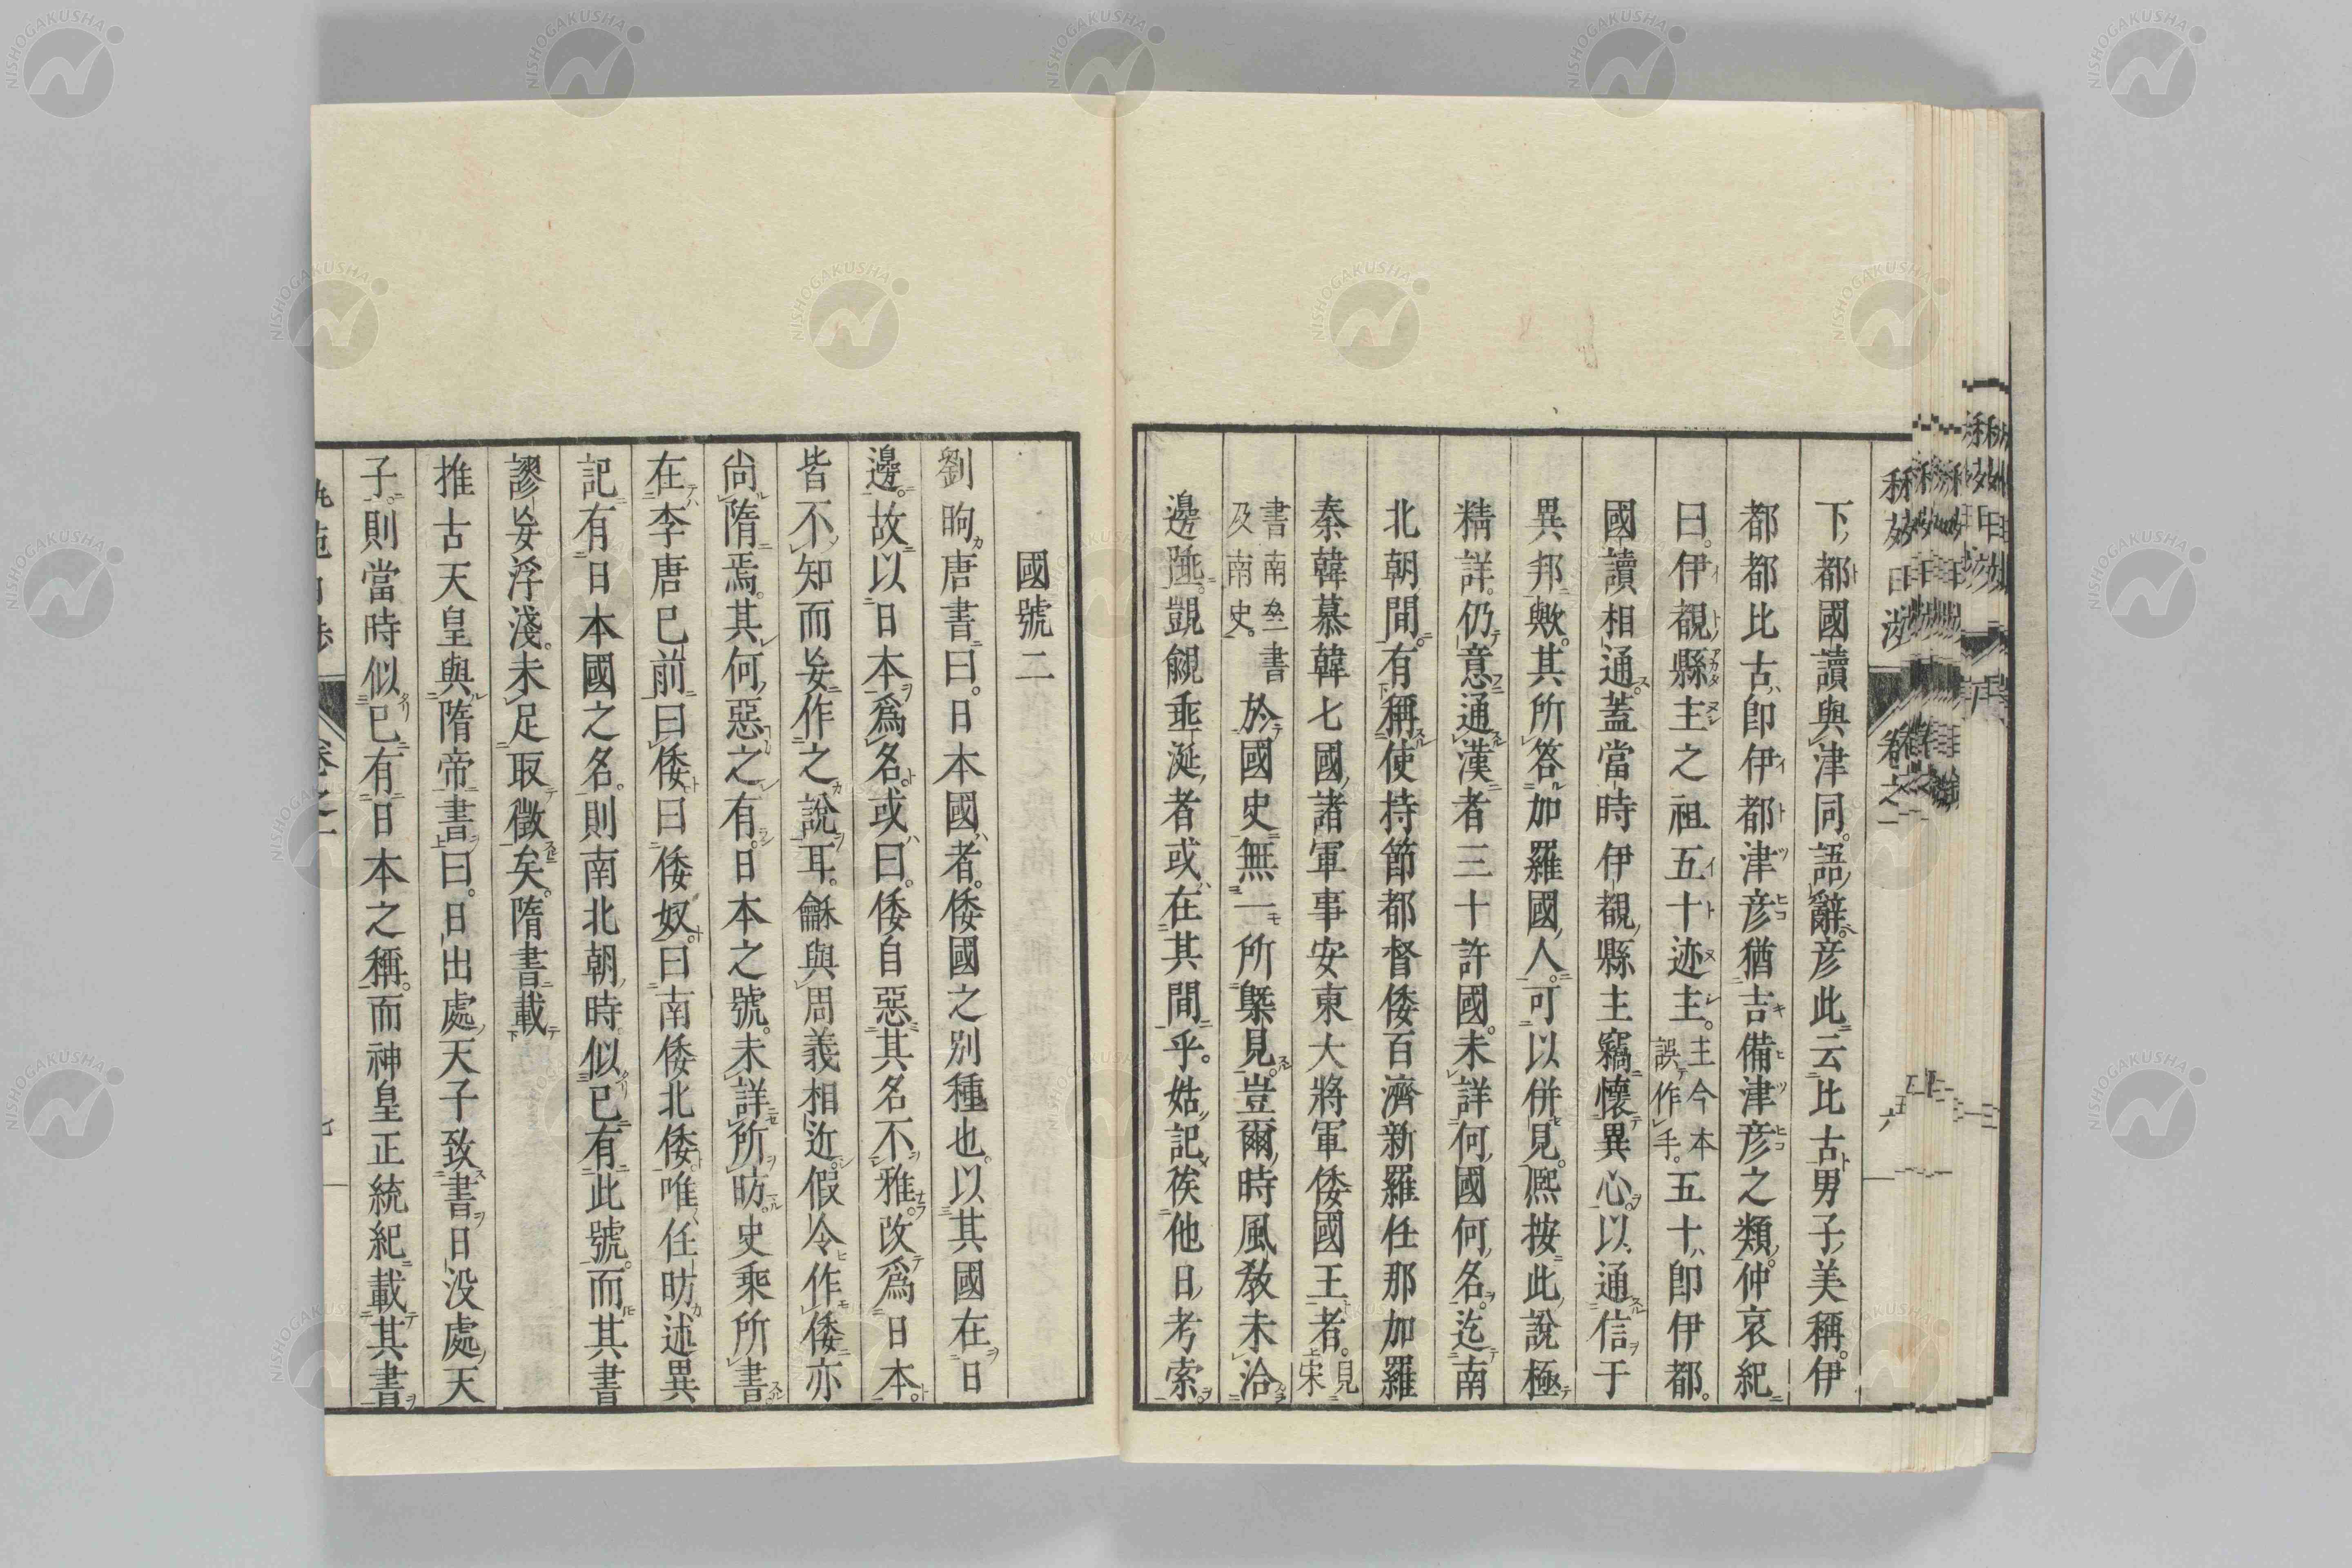 下都國讀與津同。語辭。彦此云比古男子美稱。伊
都都比古卽伊都津彦猶吉備津彦之類。仲哀紀
曰。伊覩縣主之祖五十迹主。主今本誤作手。五十卽伊都。
國讀相通。蓋當時伊覩縣主竊懷異心。以通信于
異邦歟。其所答加羅國人。可以併見。熈按此說極
精詳。仍意通漢者三十許國。未詳何國何名。迄南
北朝間。有稱使持節都督倭百濟新羅任那加羅
秦韓慕韓七國諸軍事安東大將軍倭國王者。見宋
書南齊書及南史。於國史無一所槩見。豈爾時風敎未洽
邊陲。覬覦乖涎者或在其間乎。姑記俟他日考索。
卷之一
六
國號二
劉昫唐書曰。日本國者。倭國之別種也。以其國在日
邊。故以日本爲名。或曰。倭自惡其名不雅。改爲日本。
皆不知而妄作之說耳。龢與周義相近。假令作倭亦
尙隋焉。其何惡之有。日本之號。未詳所昉。史乘所書
在李唐已前。曰倭曰倭奴。曰南倭北倭。唯任昉述異
記有日本國之名。則南北朝時似已有此號。而其書
謬妄浮淺。未足取徵矣。隋書載
推古天皇與隋帝書曰。日出處天子致書日沒處天
子。則當時似已有日本之稱。而神皇正統紀載其書
卷之一
七